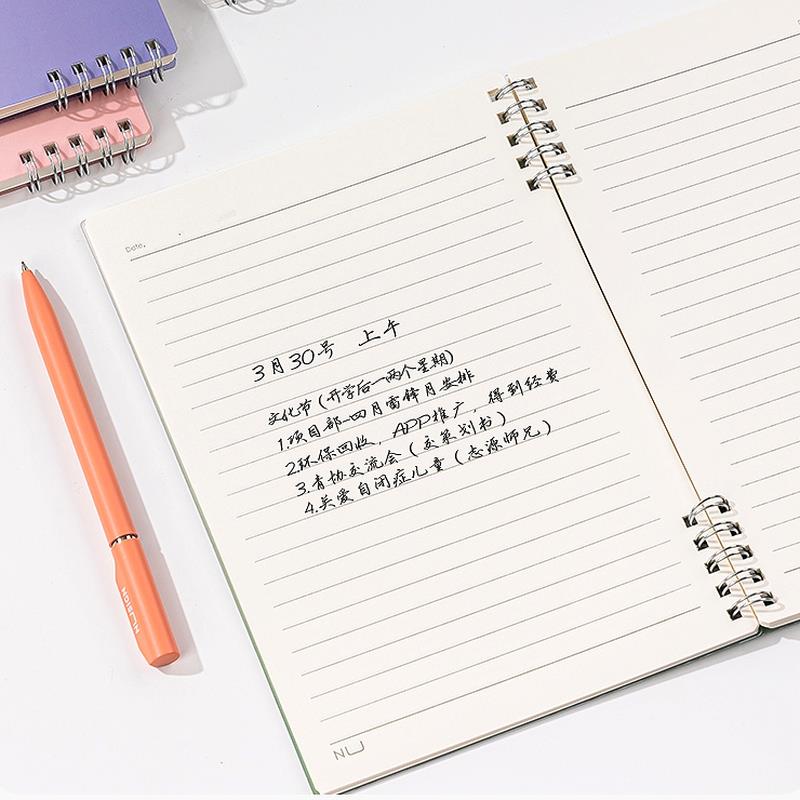 Date.
3月30号 上午
文化节(开学后一两个星期)
1.项目部—四月雷锋月安排
2.环保回收，APP推广，得到经费
3.青协交流会(交策划书)
4.关爱自闭症儿童(志源师兄)
NUSIGN